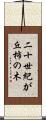 二十世紀が
丘柿の木